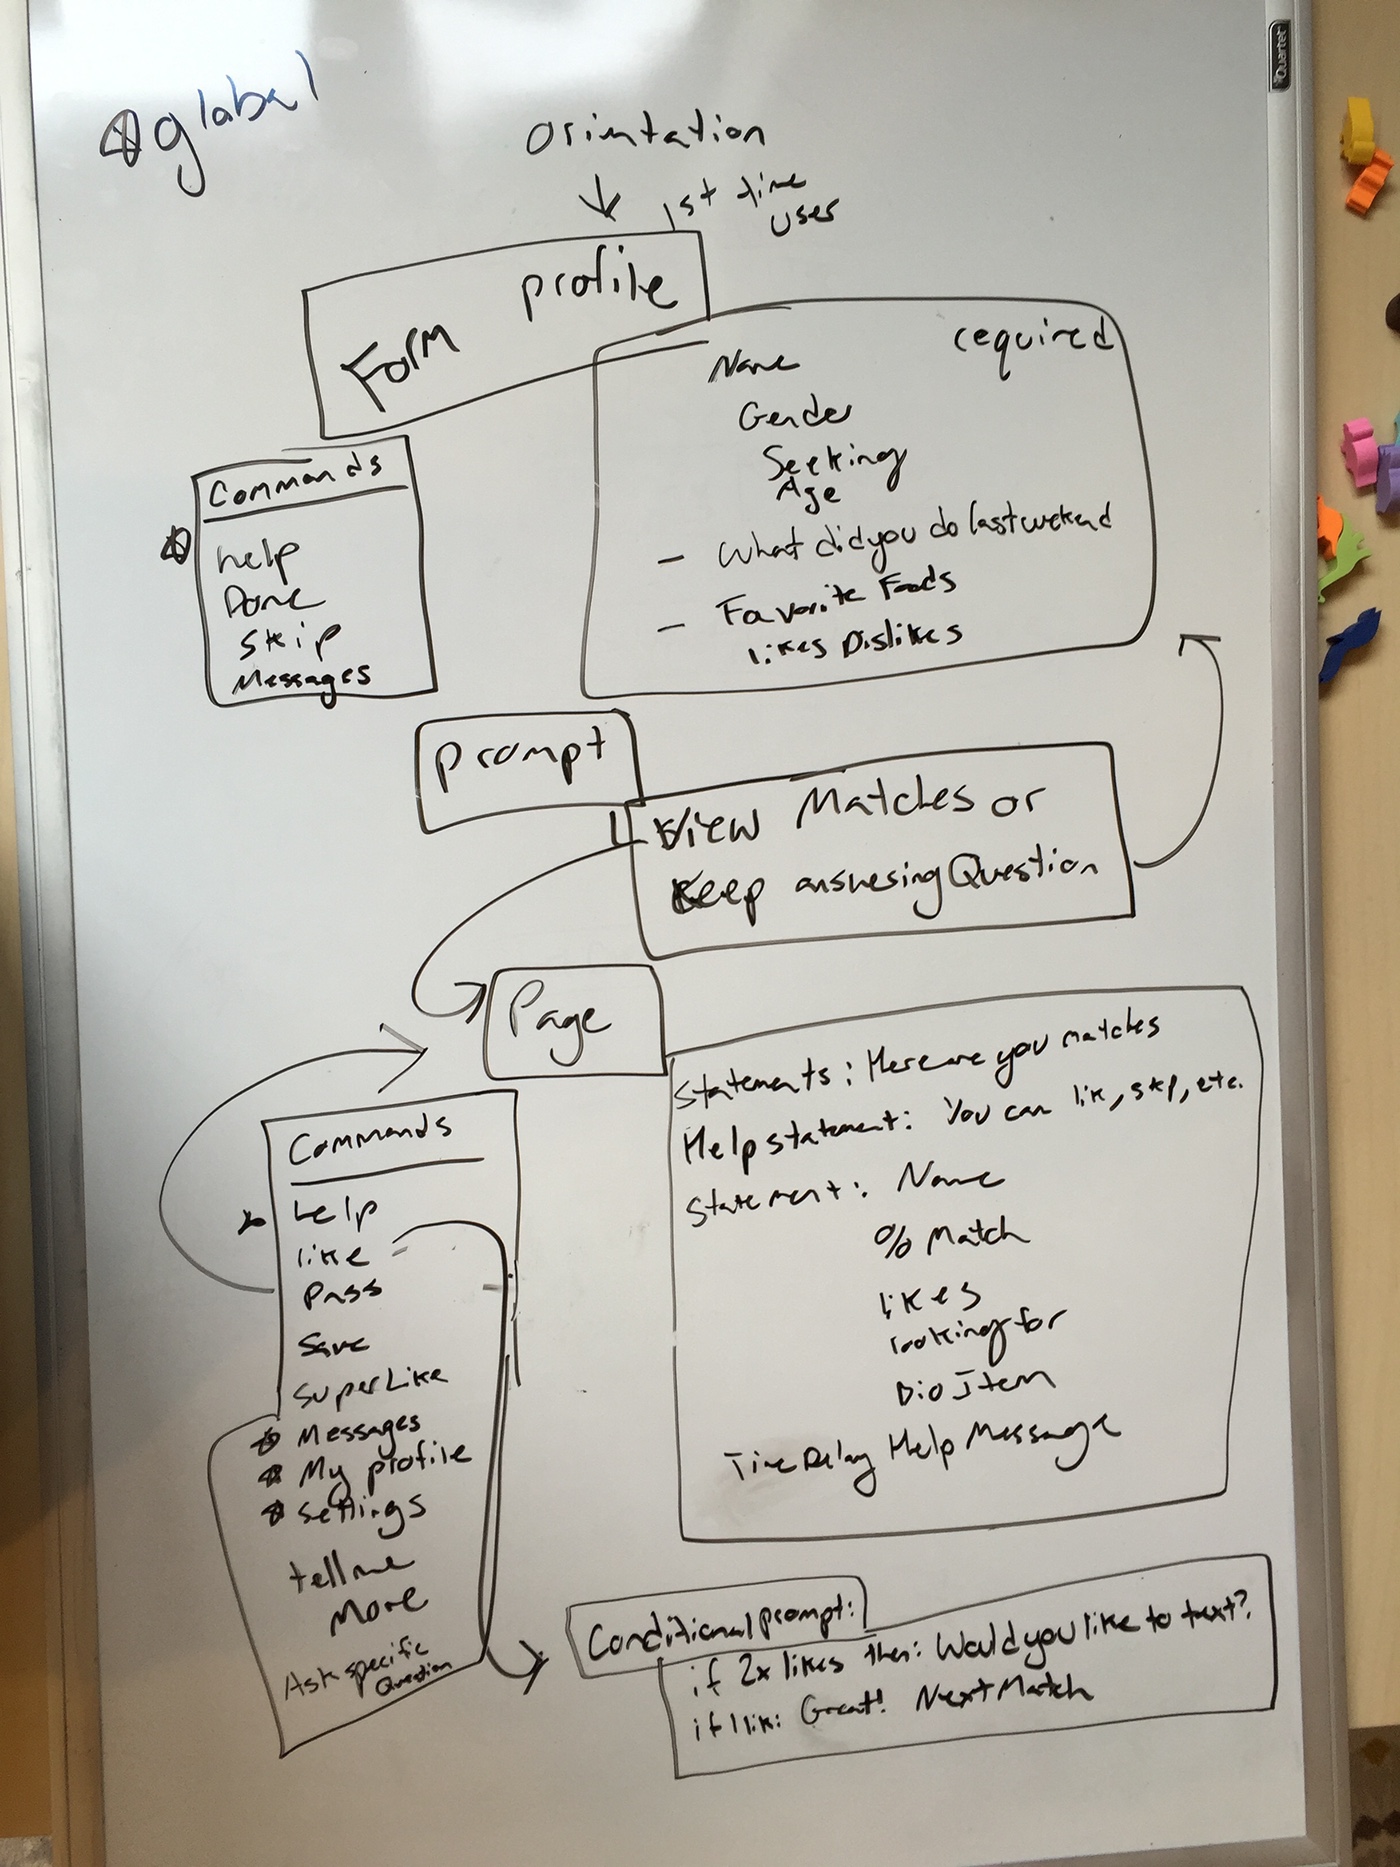 global
Quartet
Orientation
1st time
user
Form profile
required
Name
Gender
Seeking
Age
- What did you do last wekend
- Favorite Foods
likes Dislikes
Commands
help
Done
Skip
Messages
Prompt
View Matches or
Keep answering Question
Page
Statements: Here are you matches
Help statement: You can lik, skp, etc.
Statement: Name
% Match
likes
looking for
Bio Item
Time Delay Help Message
Commands
help
like
Pass
Save
SuperLike
Messages
My profile
Settings
tell me
More
Ask specific
Question
Conditional prompt:
if 2x likes then: Would you like to text?
if 1 lik: Great! Next Match